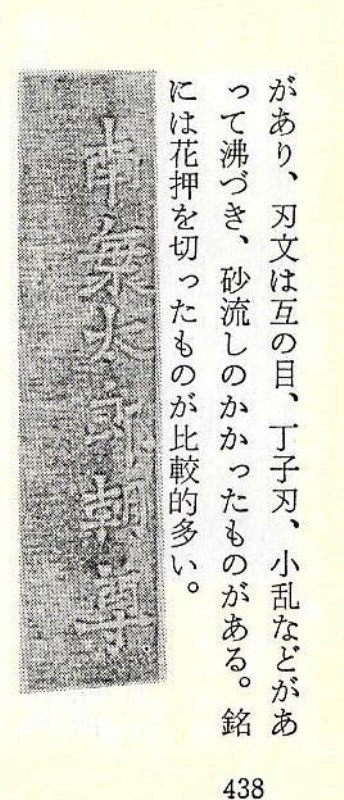 があり、刃文は互の目、丁子刃、小乱などがあ
って沸づき、砂流しのかかったものがある。銘
には花押を切ったものが比較的多い。
南无太郎朝尊
438